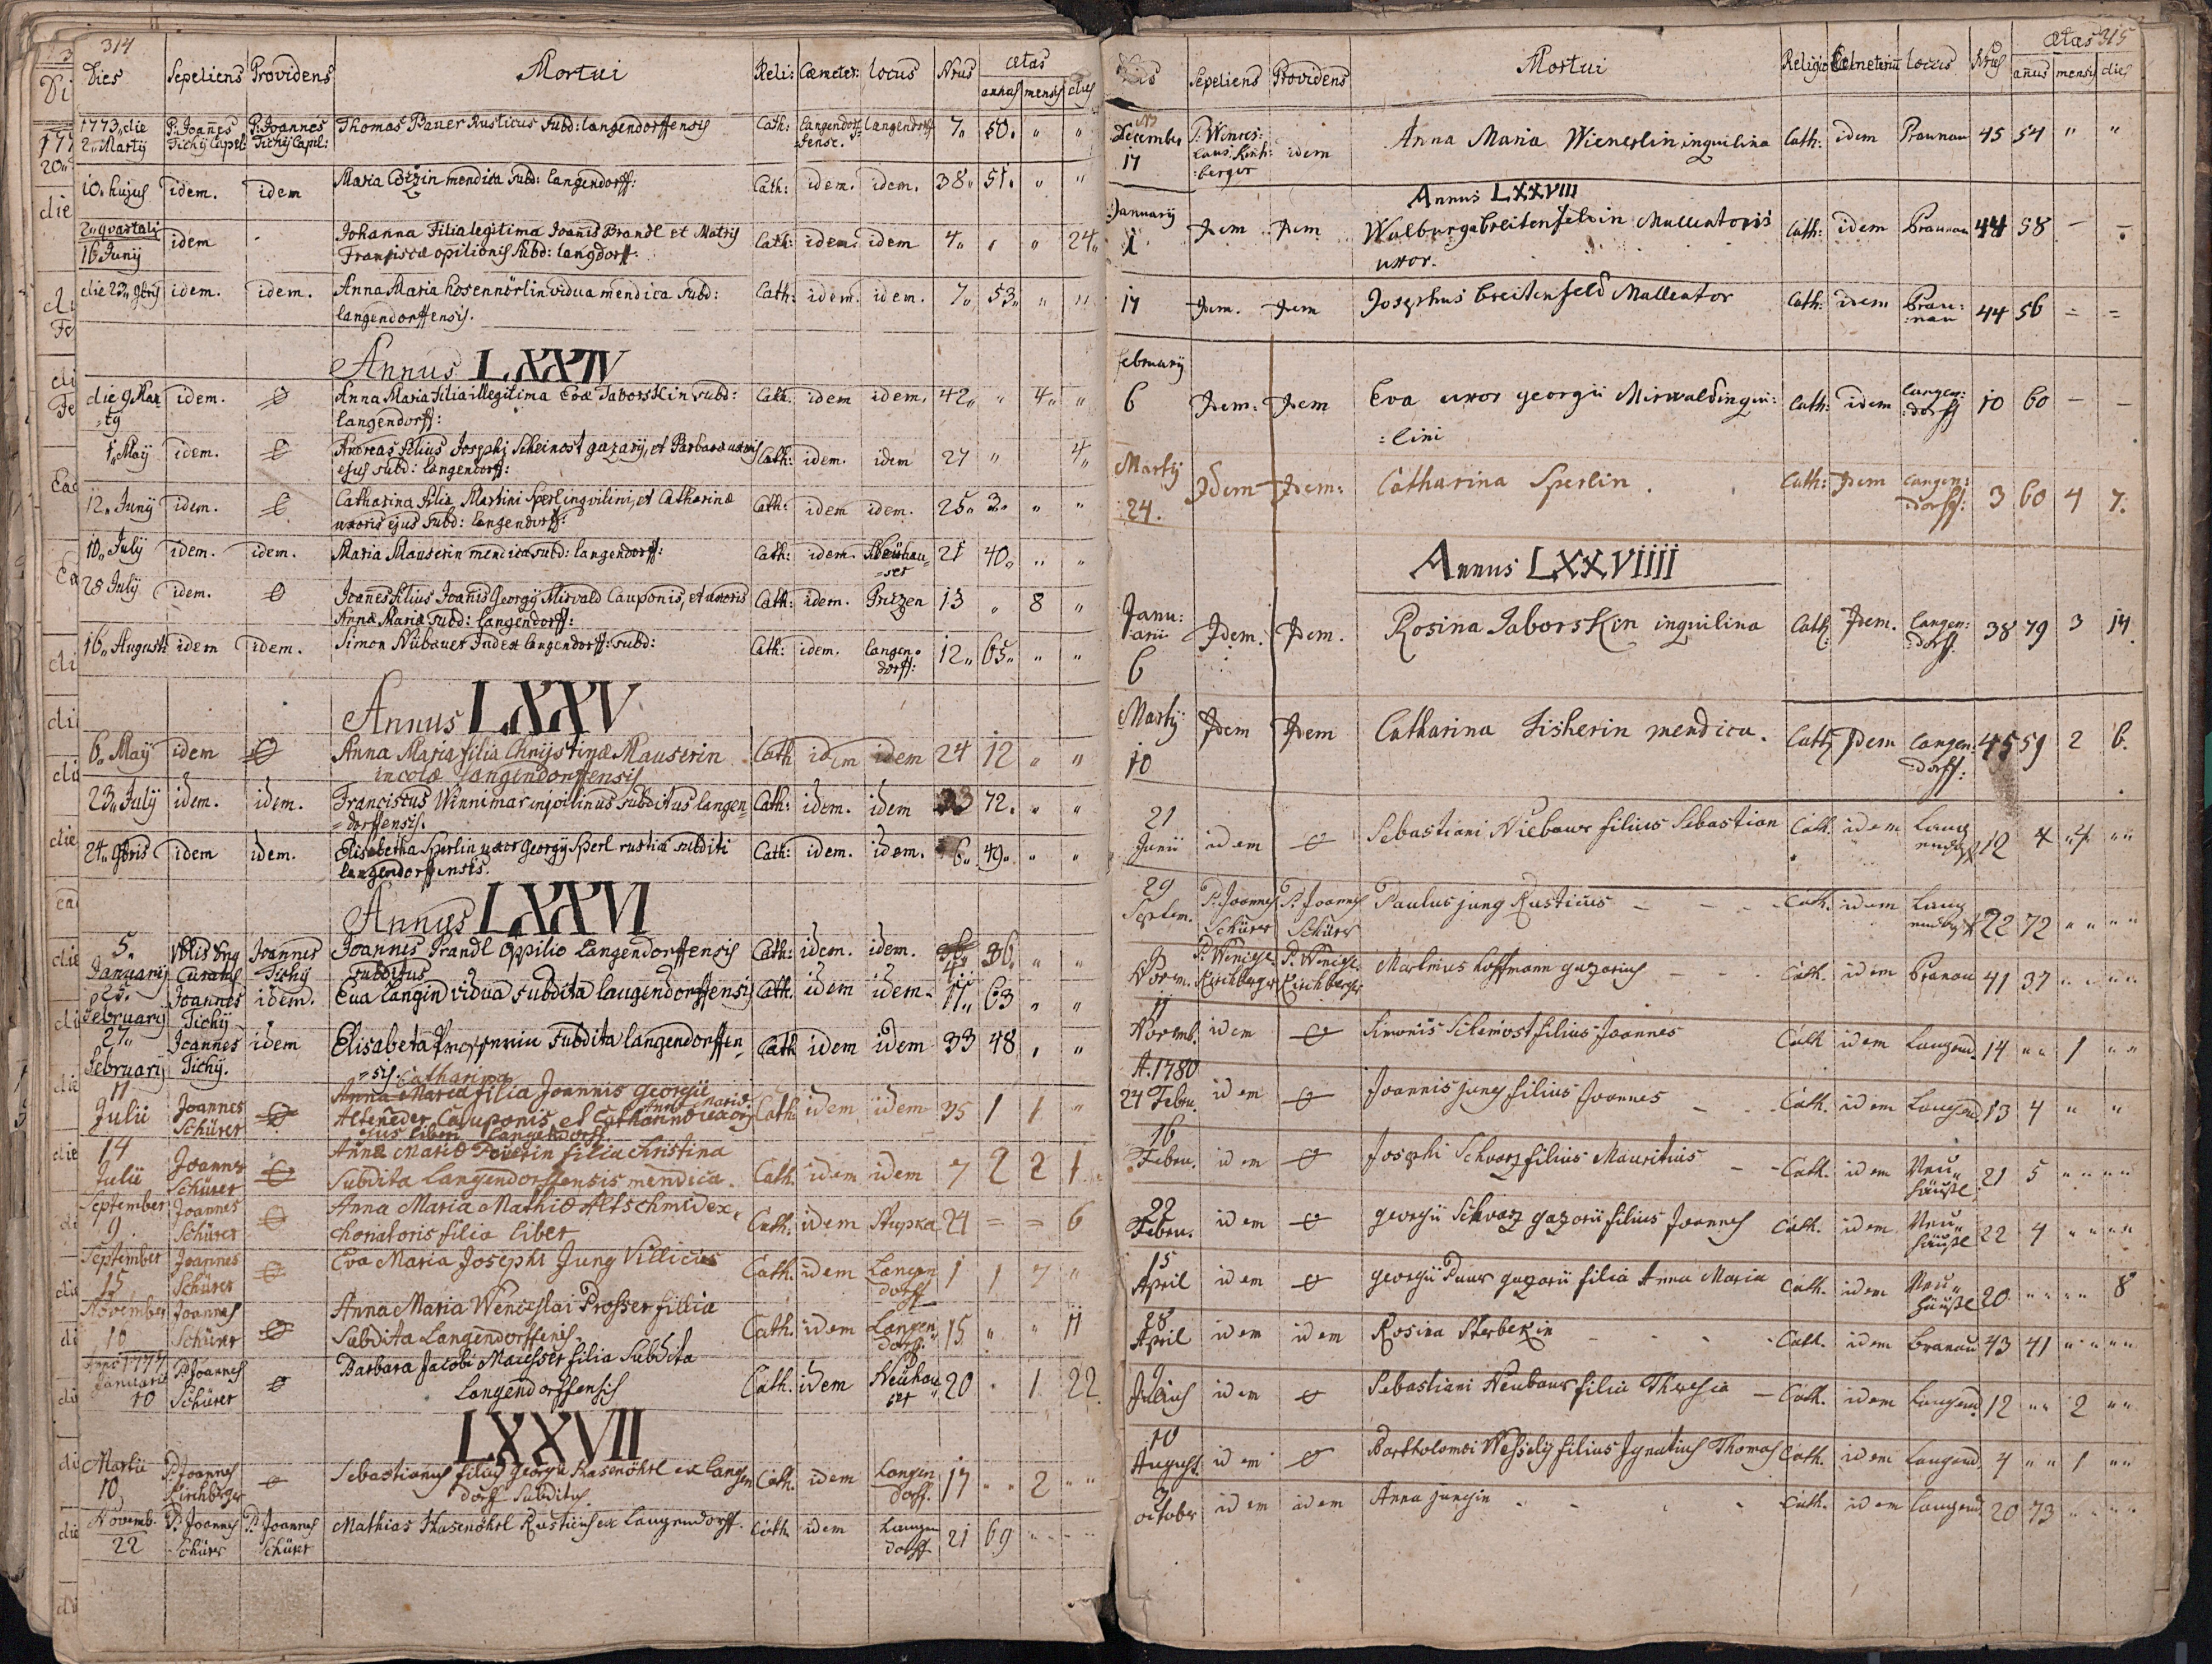 314
Dies Sepeliens Providens Mortui Reli: Cæmeter: locus Nrus ætas
annus mensis dies
1773 die 2 Martij P: Joannes Tichij Capel: P: Joannes Tichij Capel: Thomas Bauer Rusticus subd: langendorffensis Cath: langendorf=fense. langendorff 7,, 50. ,, ,,
10. hujus idem. idem Maria mendica subd: langendorff: Cath: idem. idem. 38,, 51. ,, ,,
16 Junij idem Johanna Filia legitima Joanis Brandl et Matris
Franciscæ opilionis subd: langdorff. Cath: idem idem 4,, ,, ,, 24,,
die 23 idem. idem. Anna Maria hosennörlin vidua mendica subd:
langendorffensis. Cath: idem. idem. 7,, 53,, ,, ,,
Annus LXXIV
die 9 Mar=tij idem. Anna Maria filia illegitima Evæ Taborskin subd:
langendorff: Cath. idem idem. 42,, ,, 4,, ,,
1,, Maij idem. Andreas filius Josephi Scheinost gazarij, et Barbara uxoris
ejus subd: langendorff: Cath: idem. idem 27 ,, 4,,
12,, Junij idem. Catharina filia Martini Sperl inqvilini, et Catharinæ
uxoris ejus subd: langendorff: Cath: idem idem. 25,, 3,, ,, ,,
10,, July idem. idem. Maria Mauserin mendica subd: langendorff: Cath: idem. Neühau=ser 21 40,, ,, ,,
28 July idem. Joanes filius Joanis Georgij Mirvald Cauponis, et uxoris
Annæ Mariæ subd: langendorff: Cath: idem. 13 ,, 8 ,,
16,, Augusti idem idem. Simon Nübauer Judex langendorff: subd: Cath: idem. langen=dorff: 12,, 65,, ,, ,,
Annus LXXV
6,, Maij idem Anna Maria filia Christinæ Mauserin
incolæ langendorffensis Cath idem idem 24 12 ,, ,,
23,, July idem. idem. Franciscus Winnimar inqvilinus subditus langen=
=dorffensis. Cath: idem. idem 33 72. ,, ,,
24,, 9bris idem idem. Elisabetha Sperlin uxor georgij Sperl rustici subditi
langendorffensis. Cath: idem. idem. 6,, 49,, ,, ,,
Annus LXXVI
5. Januarij Joannes Tichij Joannes Brandl Oppilio Langendorffensis
subditus Cath: idem. idem. 36,, ,, ,,
25. Februarij Joannes Tichij idem. Eva Langin vidua subdita langendorffensis Cath. idem idem. 11,, 63 ,, ,,
27,, Februarij Joannes Tichij. idem Elisabeta subdita langendorffen
=sis. Cath idem idem 33 48 ,, ,,
11 Julii Joannes Schürer Catharina
Anna Maria filia Joannis Georgii
Alteneder Cauponis et Catharinæ uxoris
ejus liberi Langendorff. Cath idem idem 35 1 1 ,,
14 Julii Joannes Schürer Anna Maria filia Christina
Subdita Langendorffensis mendica. Cath. idem idem 7 2 2 1
September 9 Joannes Schürer Anna Maria Mathiæ Altschmid ex,
choriatoris filia liber Cath. idem Stupka 24 = = 6
September 15 Joannes Schürer Eva Maria Josephi Jung Villicus Cath. idem Langen dorff 1 1 7 ,,
November 10 Joannes Schürer Anna Maria Wenceslai Prosser fillia
Subdita Langendorffensis. Cath. idem Langen dorff 15 ,, ,, 11
Anno 1777 Januarii 10 P. Joannes Schürer Barbara Jacobi filia Subdita
Langendorffensis Cath. idem Neühauser 20 . 1 22
LXXVII
Martii 10 P. Joannes Kirchberger Sebastianus filius georgii Hasenöhrl ex langen
dorff Subditus. Cath. idem Langen dorff. 17 ,, 2 ,,
Novemb. 22 P. Joannes Schürer P. Joannes Schürer Mathias Hasenöhrl Rusticus ex Langendorff. Cath. idem Langen dorff 21 69 ,, ,,
315
Dies Sepeliens Providens Mortui Religio locus Nrus ætas
annus mensis dies
December 17 P: Wences:laus Kirch:berger idem Anna Maria Wienerlin inquilina Cath: idem Braunau 45 54 ,, ,,
Annus LXXVIII
Januarij 1. Idem Idem Walburga breitenfelvin Malleatoris
uxor. Cath: idem Braunau 44 58 – –
17 Idem. Idem Josephus breitenfeld Malleator Cath: idem Brau:nau 44 56 = =
februarij 6 Idem: Idem Eva uxor georgii Mirwald inqui:
:lini Cath: idem langen:dorff 10 60 – –
Martij 24. Idem Idem: Catharina Sperlin. Cath: Idem langen:dorff: 3 60 4 7.
Annus LXXVIIII
Janu:arii 6 Idem. Idem. Rosina Taborskin inquilina Cath: Idem. langen:dorff. 38 79 3 14.
Martij: 10 Idem Idem Catharina Fisherin mendica. Cath Idem langen:dorff: 45 59 2 6.
21 Junii idem Sebastiani Niebaur filius Sebastian Cath. idem Langendorff 12 ,, 4 ,,
29 Septem. P. Joannes Schürer P. Joannes Schürer Paulus jung Rusticus Cath. idem Langendorff 22 72 ,, ,,
9 Novem. P. Wencesl. Kirchberger P. Wencesl. Kirchberger Martinus hoffmann gazarius Cath. idem Branau 41 37 ,, ,,
11 Novemb. idem Simonis Scheinost filius Joannes Cath idem Langend. 14 ,, 1 ,,
A. 1780
24 Febru. idem Joannis jung filius Joannes Cath. idem Langend 13 4 ,, ,,
16 Febru. idem Josephi Schwarz filius Mauritius Cath. idem Neu,,häußl 21 5 ,, ,,
22 Febru. idem georgii Schwarz gazarii filius Joannes Cath. idem Neu,,häußl 22 4 ,, ,,
15 April idem georgii Paur gazarii filia Anna Maria Cath. idem Neu,,häußl 20 ,, ,, 8
28 April idem idem Rosina Sterbekin Cath. idem branau 43 41 ,, ,,
9 Julius idem Sebastiani Neubaur filia Theresia Cath. idem Langend 12 ,, 2 ,,
10 August. idem Bartholomæi Wessely filius Ignatius Thomas Cath. idem Langend. 4 ,, 1 ,,
October idem idem Anna jungin Cath. idem langend. 20 73 ,, ,,